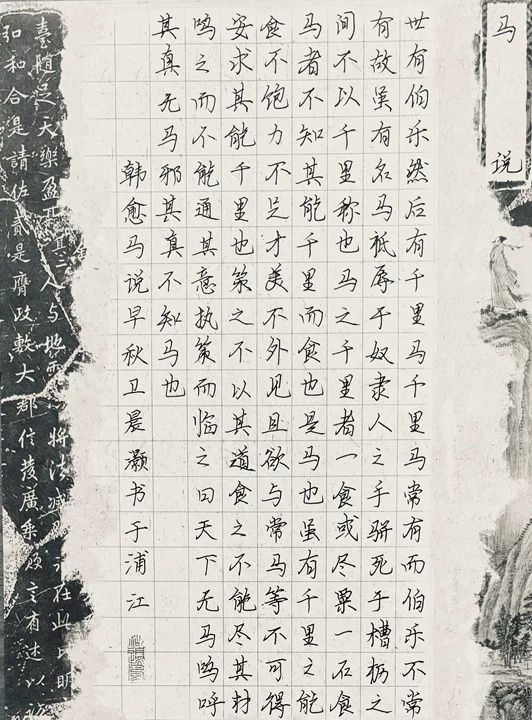 马说
世有伯乐然后有千里马千里马常有而伯乐不常
有故虽有名马祗辱于奴隶人之手骈死于槽枥之
间不以千里称也马之千里者一食或尽粟一石食
马者不知其能千里而食也是马也虽有千里之能
食不饱力不足才美不外见且欲与常马等不可得
安求其能千里也策之不以其道食之不能尽其材
鸣之而不能通其意执策而临之曰天下无马呜呼
其真无马邪其真不知马也
韩愈马说早秋卫晨灏书于浦江
臺随是天樂盈其二人与地将法在此明
和合是請佐貳是齊政數大郡信廣乘須言有述以